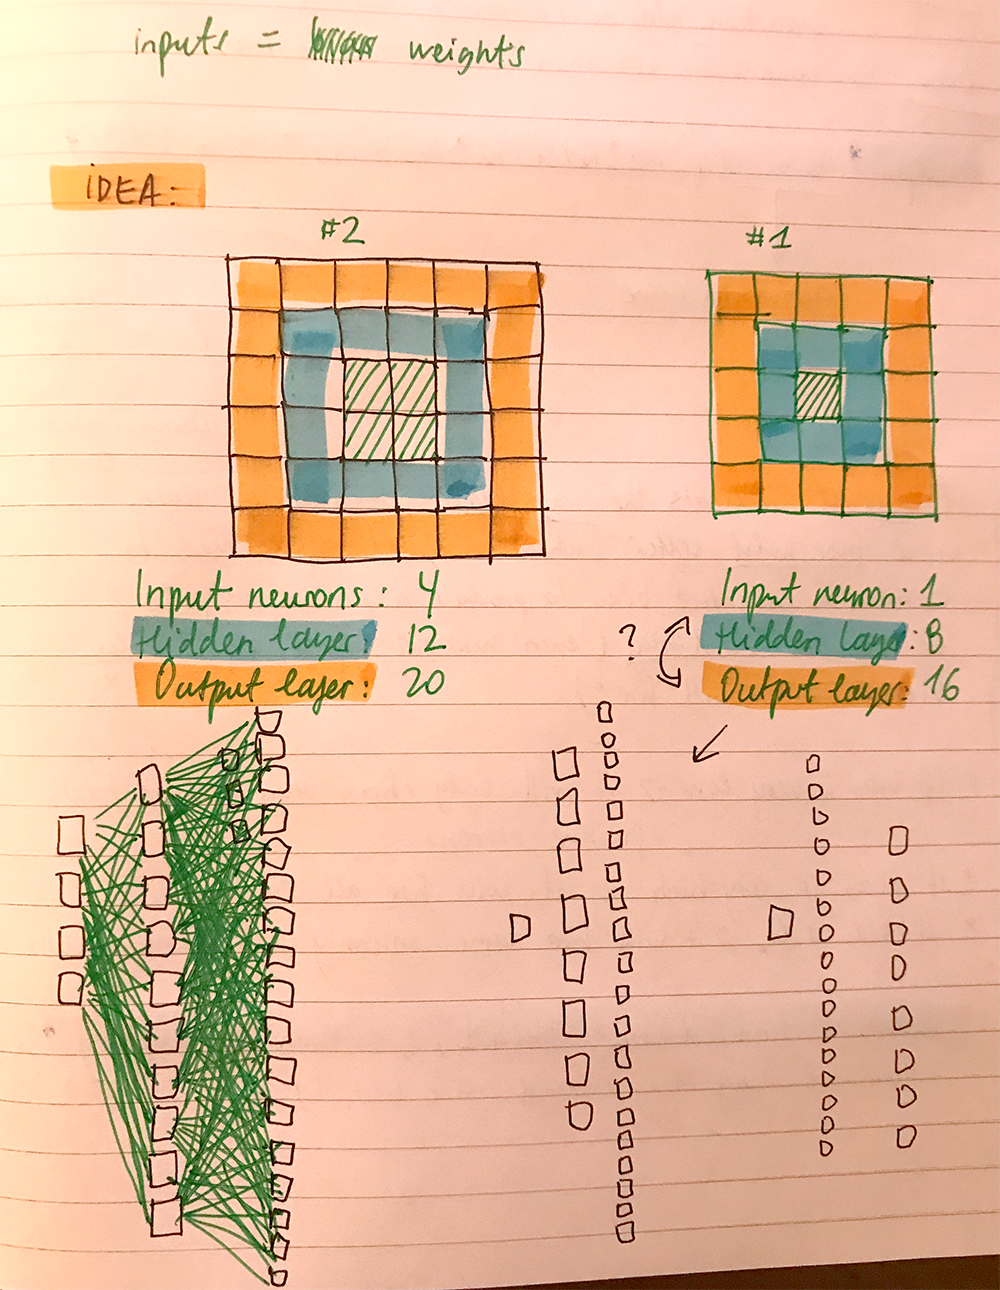 inputs = weights
IDEA:
#2
#1
Input neurons: 4
Hidden layer: 12
Output layer: 20
?
Input neuron: 1
Hidden layer: 8
Output layer: 16